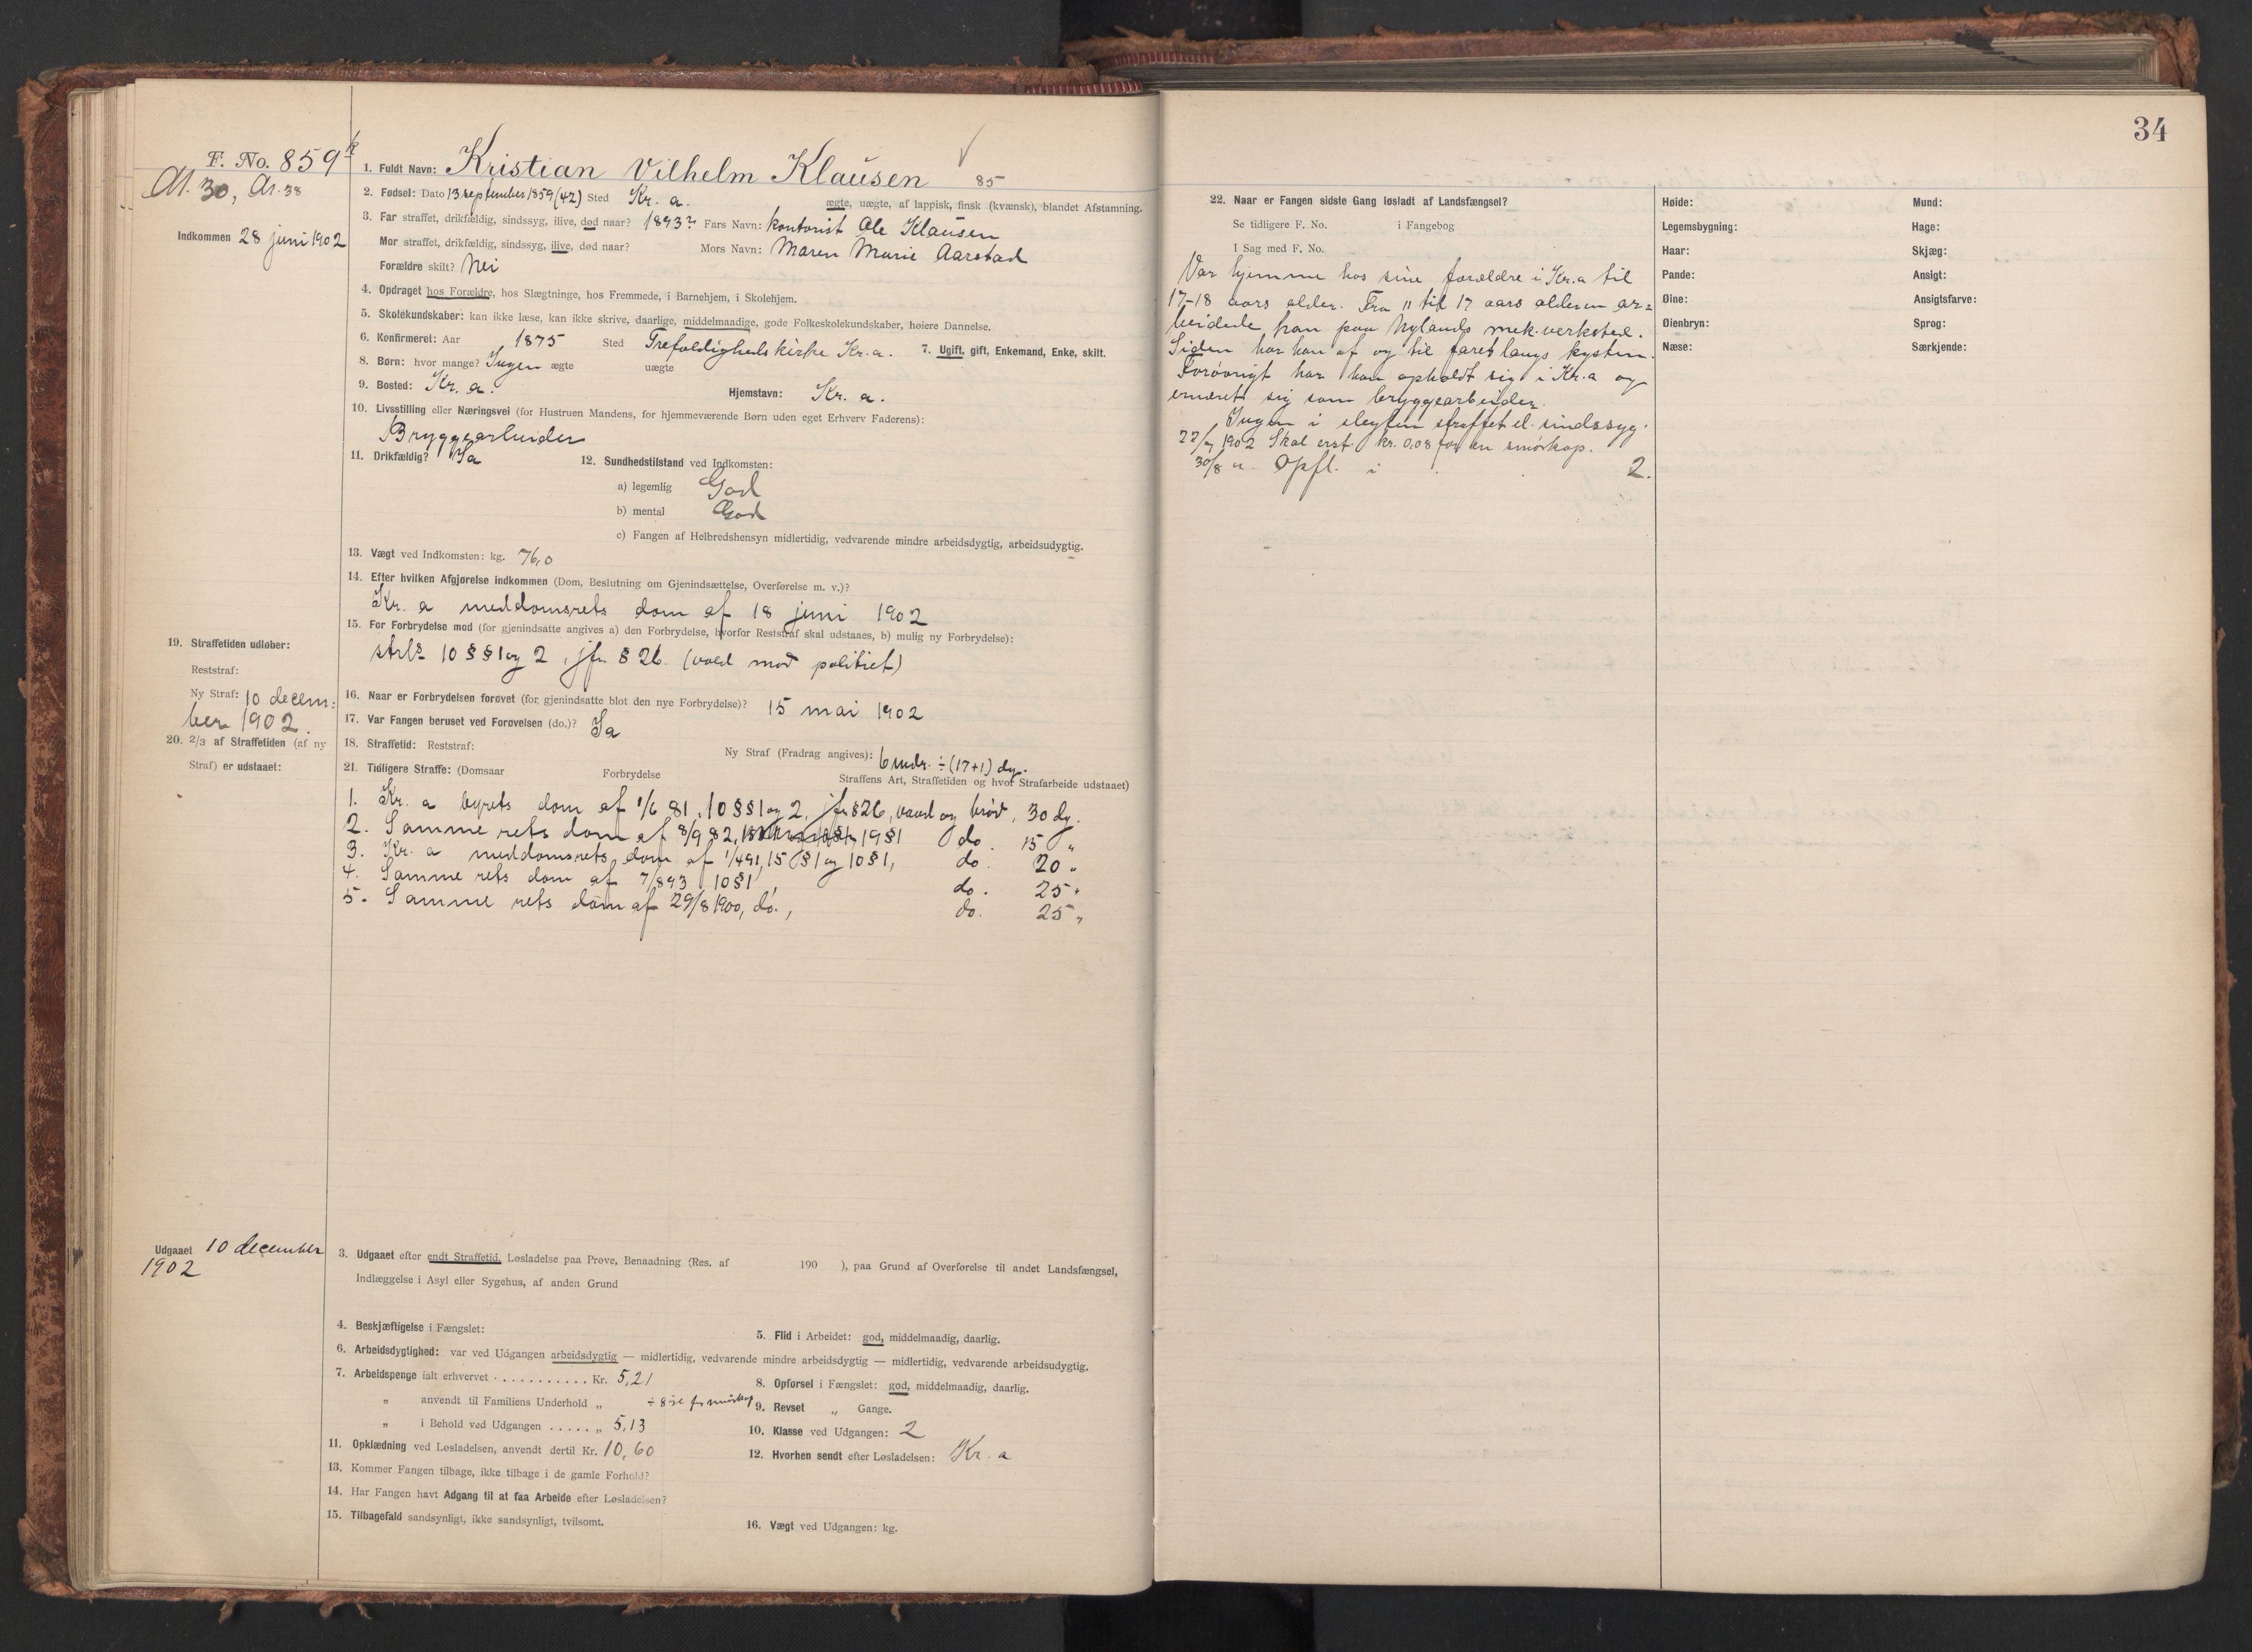 F. No. 859
Al. 30, Ar. 38
Indkommen 28 juni 1902
1. Fuldt Navn: Kristian Vilhelm Klausen 85
2. Fødsel: Dato 13 september 1859 (42) Sted Kr. a. ægte, uægte, af lappisk, finsk (kvænsk), blandet Afstamning.
3. Far straffet, drikfældig, sindssyg, ilive, død naar? 1893? Fars Navn: kontorist Ole Klausen
Mor straffet, drikfældig, sindssyg, ilive, død naar? Mors Navn: Maren Marie Aarstad
Forældre skilt? Nei
4. Opdraget hos Forældre, hos Slægtninge, hos Fremmede, i Barnehjem, i Skolehjem.
5. Skolekundskaber: kan ikke læse, kan ikke skrive, daarlige, middelmaadige, gode Folkeskolekundskaber, høiere Dannelse.
6. Konfirmeret: Aar 1875 Sted Trefoldighedskirke Kr. a. 7. Ugift, gift, Enkemand, Enke, skilt.
8. Børn: hvor mange? Ingen ægte uægte
9. Bosted: Kr. a. Hjemstavn: Kr. a.
10. Livsstilling eller Næringsvei (for Hustruen Mandens, for hjemmeværende Børn uden eget Erhverv Faderens):
Bryggearbeider
11. Drikfældig? Ja 12. Sundhedstilstand ved Indkomsten:
a) legemlig God
b) mental God
c) Fangen af Helbredshensyn midlertidig, vedvarende mindre arbeidsdygtig, arbeidsudygtig.
13. Vægt ved Indkomsten: kg. 76,0
14. Efter hvilken Afgjørelse indkommen (Dom, Beslutning om Gjenindsættelse, Overførelse m. v.)?
Kr. a meddomsrets dom af 18 juni 1902
15. For Forbrydelse mod (for gjenindsatte angives a) den Forbrydelse, hvorfor Reststraf skal udstaaes, b) mulig ny Forbrydelse):
strl's 10 § § 1 og 2, jfr. § 26. (vold mod politiet)
19. Straffetiden udløber:
Reststraf:
Ny Straf: 10 decem:
ber 1902.
16. Naar er Forbrydelsen forøvet (for gjenindsatte blot den nye Forbrydelse)? 15 mai 1902
17. Var Fangen beruset ved Forøvelsen (do.)? Ja
20. 2/3 af Straffetiden (af ny
Straf) er udstaaet:
18. Straffetid: Reststraf: Ny Straf (Fradrag angives): 6 mdr. ÷ (17+1) dg.
21. Tidligere Straffe: (Domsaar Forbrydelse Straffens Art, Straffetiden og hvor Strafarbeide udstaaet)
1. Kr. a byrets dom af 1/6 81, 10 § § 1 og 2, jfr § 26, vand og brød, 30 dg.
2. Samme rets dom af 8/9 82, 19 § 1 do. 15 "
3. Kr. a meddomsrets dom af 1/4 91, 15 § 1 og 10 § 1, do. 20 "
4. Samme rets dom af 7/8 93 10 § 1, do. 25 "
5. Samme rets dom af 29/8 1900, do., do. 25 "
Udgaaet 10 december
1902
3. Udgaaet efter endt Straffetid, Løsladelse paa Prøve, Benaadning (Res. af 190 ), paa Grund af Overførelse til andet Landsfængsel,
Indlæggelse i Asyl eller Sygehus, af anden Grund
4. Beskjæftigelse i Fængslet: 5. Flid i Arbeidet: god, middelmaadig, daarlig.
6. Arbeidsdygtighed: var ved Udgangen arbeidsdygtig — midlertidig, vedvarende mindre arbeidsdygtig — midlertidig, vedvarende arbeidsudygtig.
7. Arbeidspenge ialt erhvervet . . . . . . . . . . . Kr. 5,21 8. Opførsel i Fængslet: god, middelmaadig, daarlig.
„ anvendt til Familiens Underhold „ ÷ 8 øre for smørkop 9. Revset „ Gange.
„ i Behold ved Udgangen . . . . . „ 5,13 10. Klasse ved Udgangen: 2
11. Opklædning ved Løsladelsen, anvendt dertil Kr. 10,60 12. Hvorhen sendt efter Løsladelsen: Kr. a
13. Kommer Fangen tilbage, ikke tilbage i de gamle Forhold?
14. Har Fangen havt Adgang til at faa Arbeide efter Løsladelsen?
15. Tilbagefald sandsynligt, ikke sandsynligt, tvilsomt. 16. Vægt ved Udgangen: kg.
34
22. Naar er Fangen sidste Gang løsladt af Landsfængsel?
Se tidligere F. No. i Fangebog
I Sag med F. No.
Var hjemme hos sine forældre i Kr.a til
17-18 aars alder. Fra 11 til 17 aars alderen ar=
beidede han paa Nylands mek. verksted.
Siden har han af og til faret langs kysten.
Forøvrigt har han opholdt sig i Kr.a og
ernæret sig som bryggearbeider.
Ingen i slegten straffet el. sindssyg.
22/7 1902 Skal erst. kr. 0,08 for en smørkop.
30/8 " Opfl. i 2.
Høide: Mund:
Legemsbygning: Hage:
Haar: Skjæg:
Pande: Ansigt:
Øine: Ansigtsfarve:
Øienbryn: Sprog:
Næse: Særkjende: